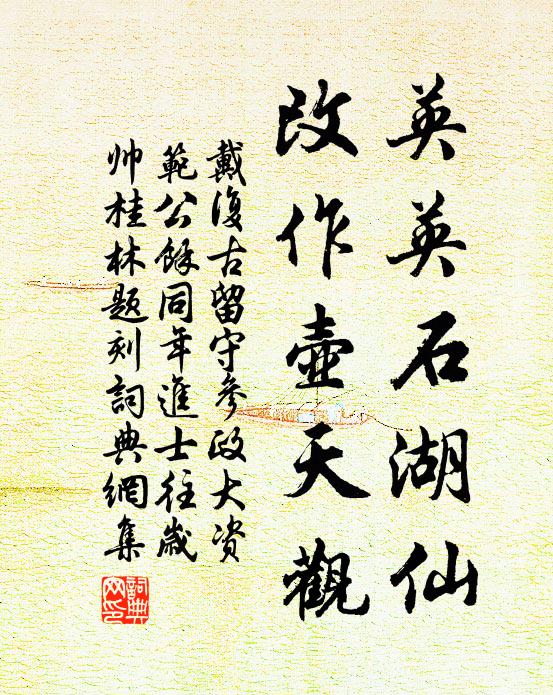 英英石湖仙
改作壺天觀
戴復古留守參政大资
範公餘同年進士往歲
帅桂林題刻詞典網集
詞典網印